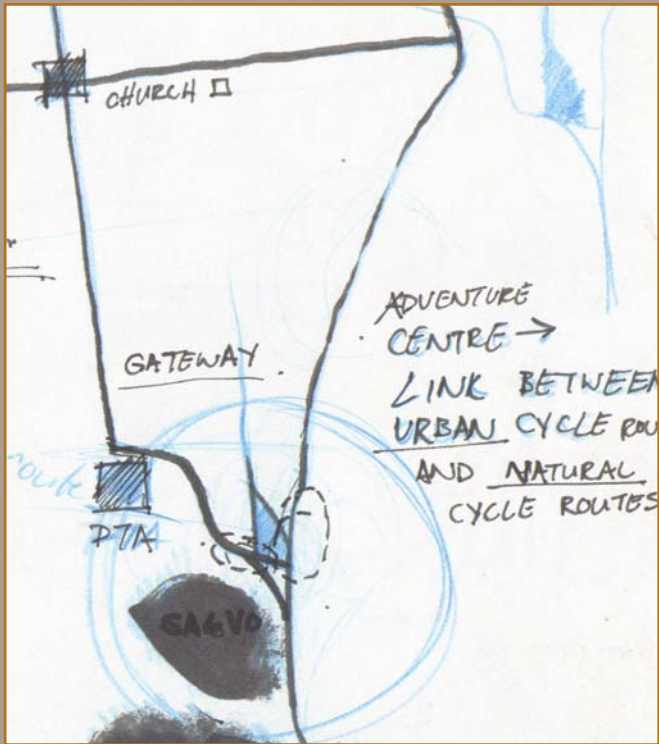 CHURCH
ADVENTURE
CENTRE →
LINK BETWEEN
URBAN CYCLE ROU
AND NATURAL
CYCLE ROUTES
GATEWAY
route
PTA